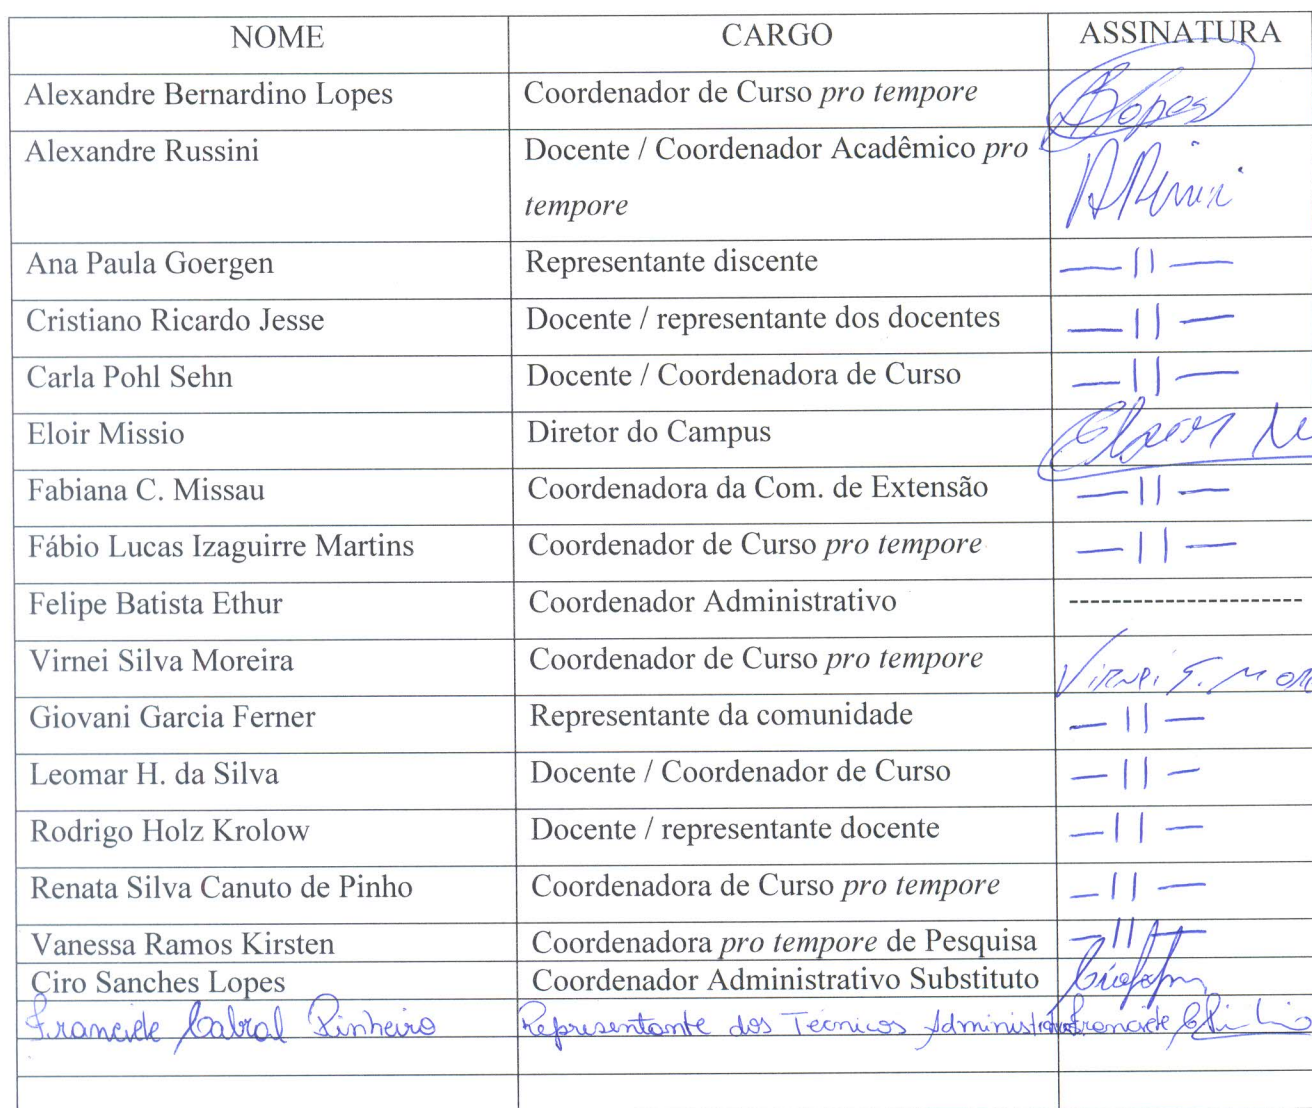 NOME CARGO ASSINATURA
Alexandre Bernardino Lopes Coordenador de Curso pro tempore Lopes
Alexandre Russini Docente / Coordenador Acadêmico pro
tempore
Ana Paula Goergen Representante discente — || —
Cristiano Ricardo Jesse Docente / representante dos docentes — || —
Carla Pohl Sehn Docente / Coordenadora de Curso — || —
Eloir Missio Diretor do Campus Eloir
Fabiana C. Missau Coordenadora da Com. de Extensão — || —
Fábio Lucas Izaguirre Martins Coordenador de Curso pro tempore — || —
Felipe Batista Ethur Coordenador Administrativo ----------------------
Virnei Silva Moreira Coordenador de Curso pro tempore Virnei S. Mor
Giovani Garcia Ferner Representante da comunidade — || —
Leomar H. da Silva Docente / Coordenador de Curso — || —
Rodrigo Holz Krolow Docente / representante docente — || —
Renata Silva Canuto de Pinho Coordenadora de Curso pro tempore — || —
Vanessa Ramos Kirsten Coordenadora pro tempore de Pesquisa — || —
Ciro Sanches Lopes Coordenador Administrativo Substituto
Franciele Cabral Pinheiro Representante dos Técnicos Administrativos Franciele